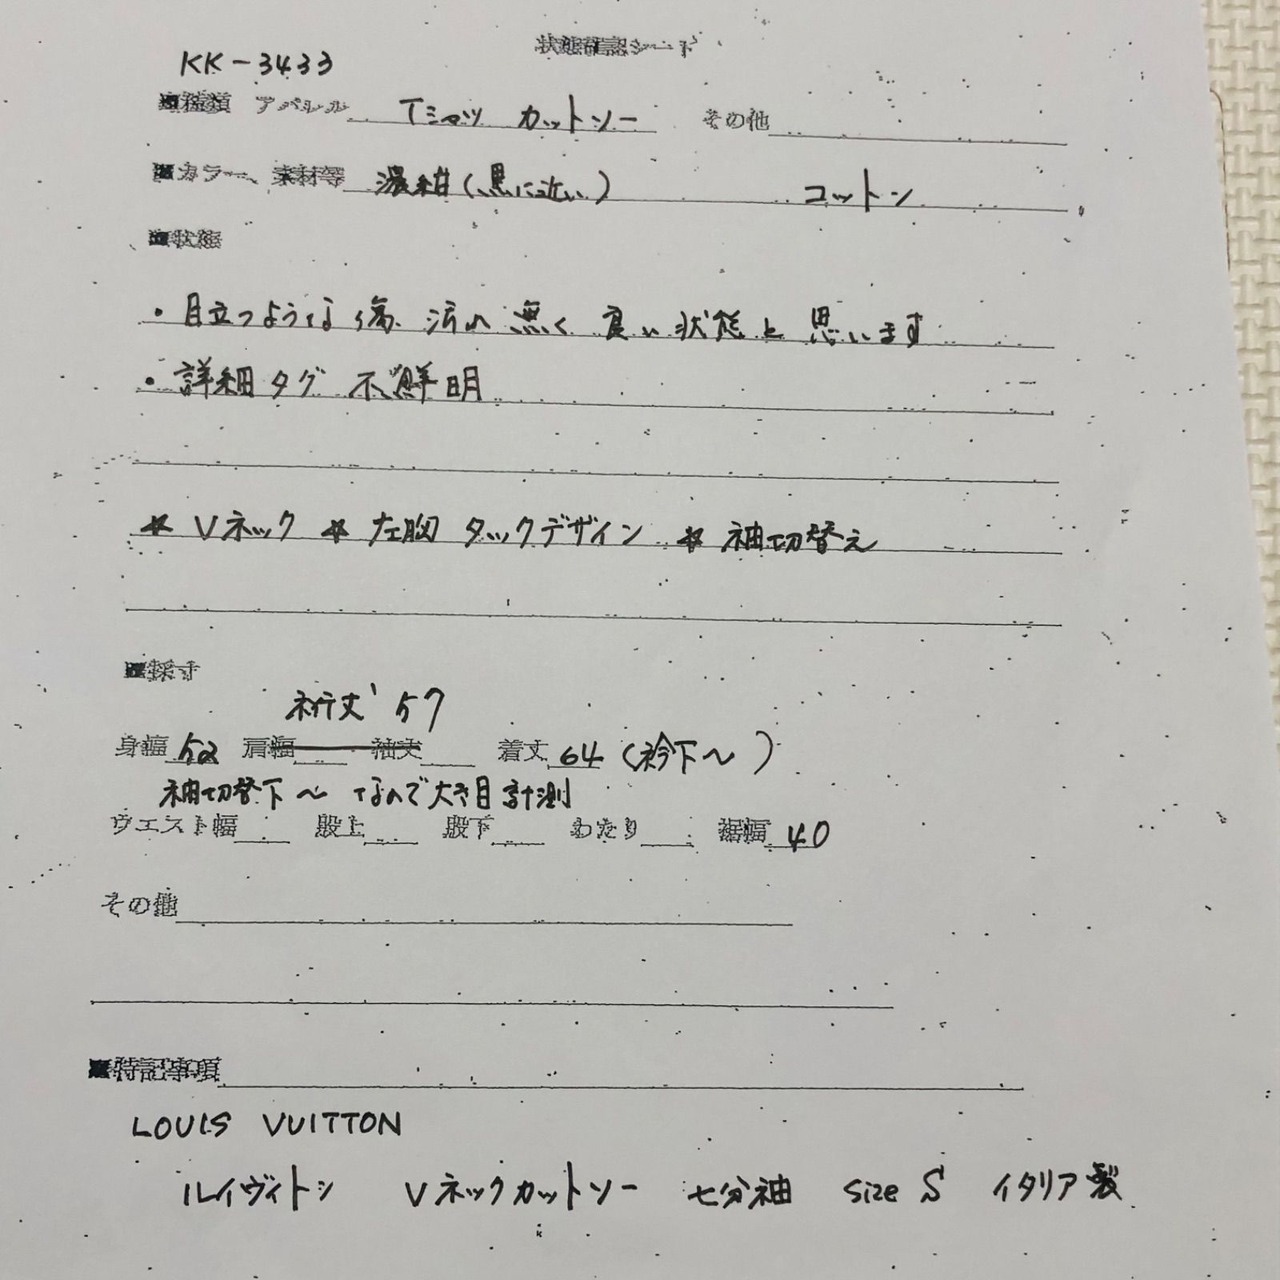 状態確認シート
KK-3433
■種類 アパレル Tシャツ カットソー その他
■カラー、素材等 濃紺(黒に近い) コットン
■状態
・目立つような傷、汚れ無く良い状態と思います
・詳細タグ 不鮮明
* Vネック * 左胸 タックデザイン * 袖切替え
■採寸
裄丈 57
身幅 52 肩幅 袖丈 着丈 64 (衿下〜)
袖切替下〜なので大き目計測
ウエスト幅 股上 股下 わたり 裾幅 40
その他
■特記事項
LOUIS VUITTON
ルイヴィトン Vネックカットソー 七分袖 size S イタリア製